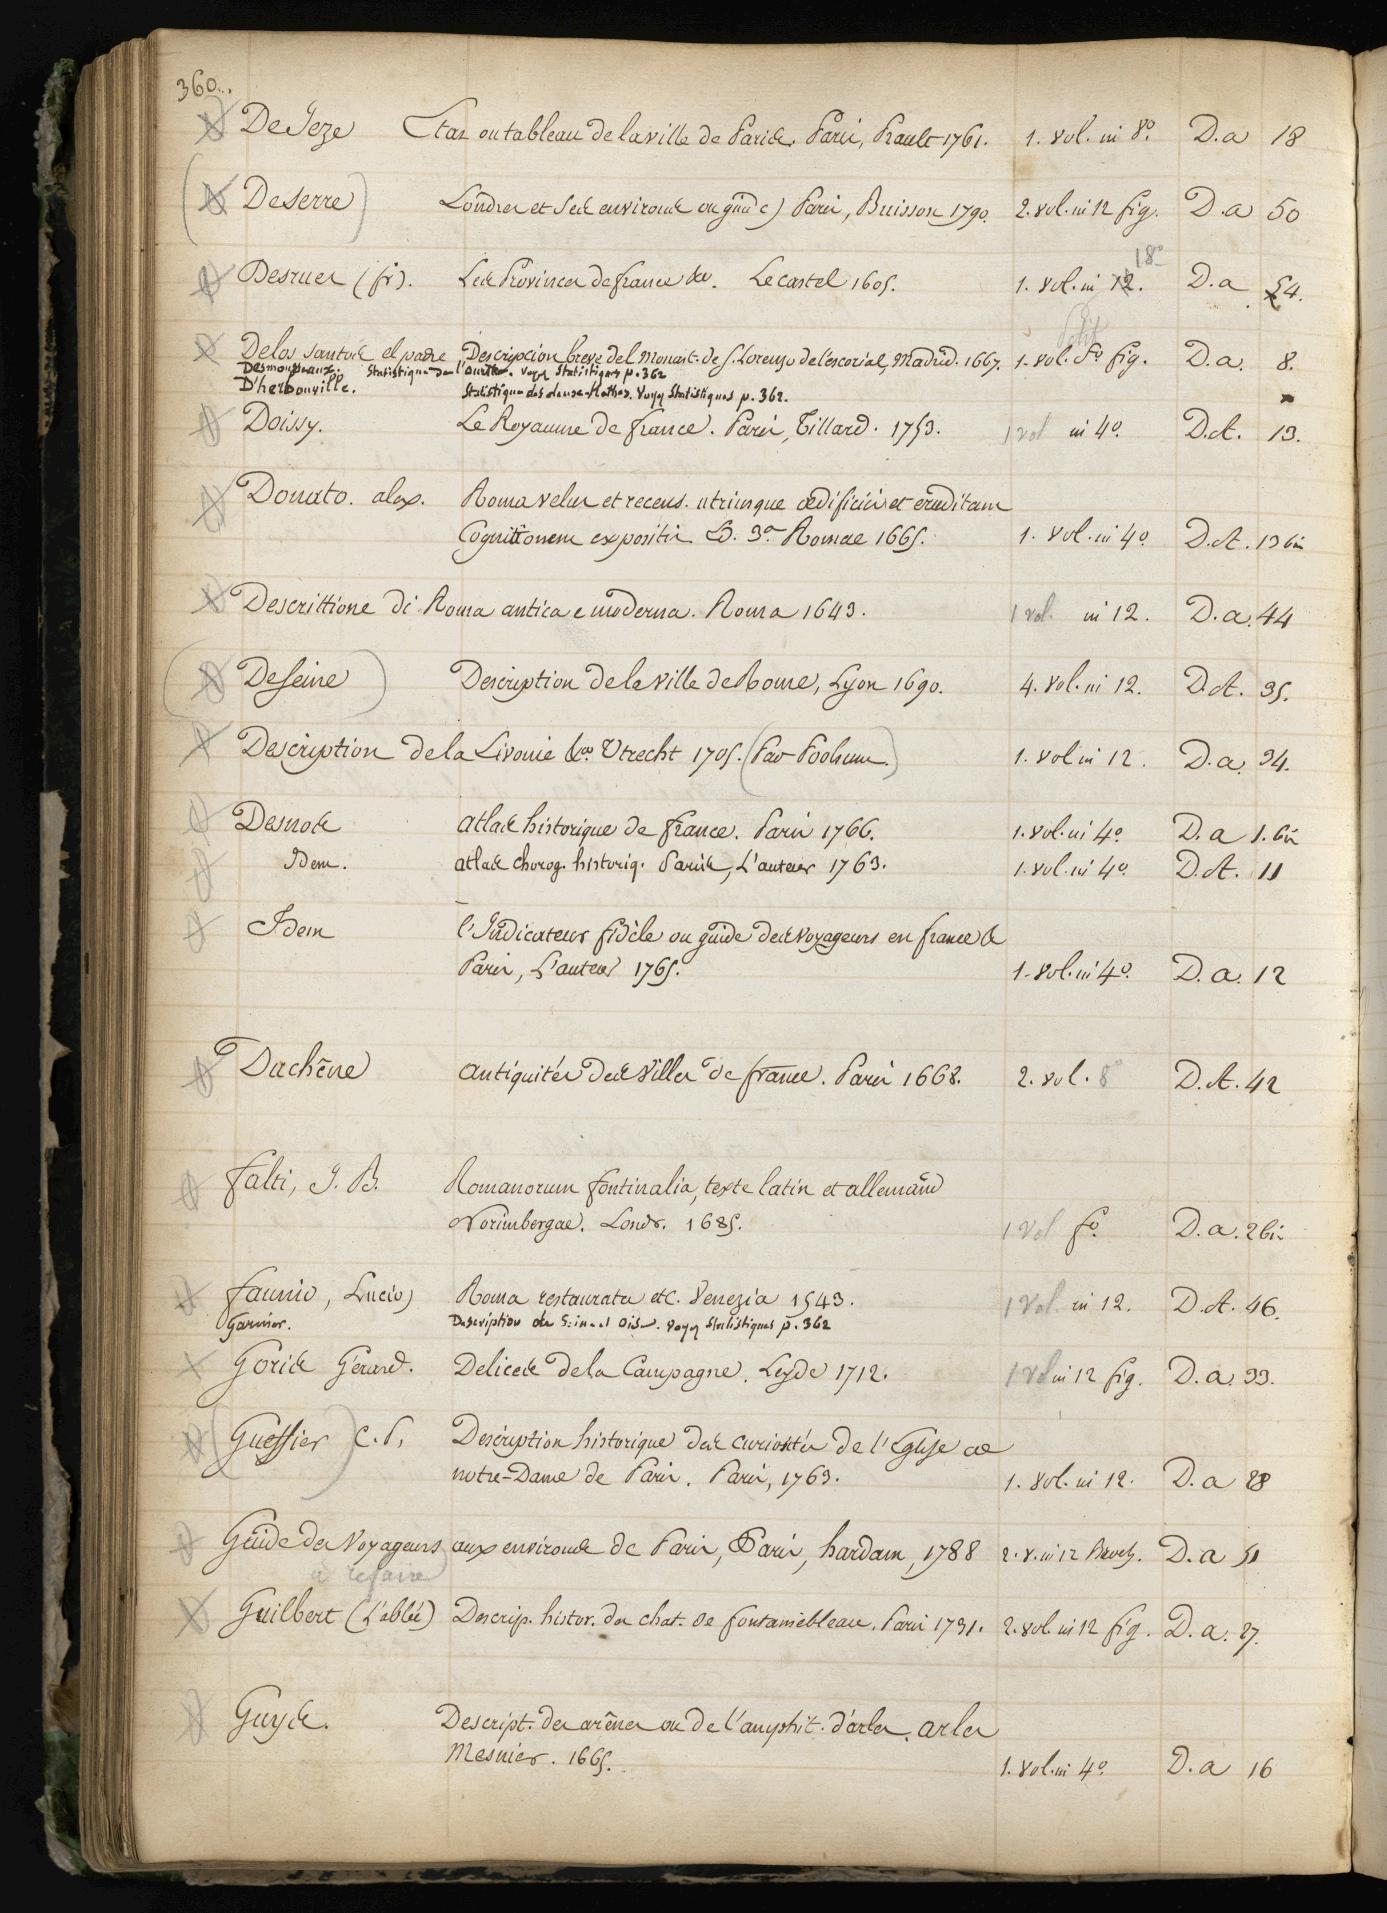 360..
De Jeze Etat ou tableau de la ville de Paris. Paris, Prault 1761. 1. vol. in 8.° D.a 18
De Serre Londres et ses environs Paris, Buisson 1790. 2. vol. in 12 fig. D.a 50
18°
Desrues (fr). Les Provinces de france &a. Le castel 1605. 1. vol. in 12. D.a 54.
petit
De los santos el padre Descripcion breve del Monast. de S. Lorenzo de l'escorial, Madrid. 1667. 1. vol. f° fig. D.a. 8.
Desmousseaux. Statistique de l'ourthe. voyez Statistiques p. 362
D'herbouville. Statistique des deux-Nethes. Voyez Statistiques p. 362.
Doissy. Le Royaume de france. Paris, Tillard. 1753. 1 vol in 4°. D.A. 13.
Donato. alex. Roma vetus et recens. utriusque ædificiis et eruditam
Cognitionem expositis Ed. 3.a Romae 1665. 1. vol. in 4° D.A. 13 bis
Descrittione di Roma antica e moderna. Roma 1643. 1 vol. in 12. D.a. 44
De Seine Description de la ville de Rome, Lyon 1690. 4. vol. in 12. D.A. 35.
Description de la Livonie &a. Utrecht 1705. (Par ) 1. vol in 12. D.a. 34.
Desnos atlas historique de france. Paris 1766. 1. vol. in 4° D.a 1. bis
Idem. atlas chorog. historiq. Paris, L'auteur 1763. 1. vol. in 4° D.A. 11
Idem l'Indicateur fidèle ou guide des voyageurs en france &
Paris, L'auteur 1765. 1. vol. in 4° D.a. 12
Duchêne antiquités des Villes de france. Paris 1668. 2. vol. 8° D.A. 42
falti, J. B. Romanorum fontinalia, texte latin et allemand
Norimbergae. Londr. 1685. 1 vol f° D.a. 2 bis
faunio, Lucio Roma restaurata etc. Venezia 1543. 1 vol. in 12. D.A. 46.
Garnier. Description de Seine et Oise. voyez Statistiques p. 362
Goris Gérard. Delices de la Campagne. Leyde 1712. 1 vol in 12 fig. D.a. 33.
Gueffier C. P. Description historique des curiosités de l'Eglise de
notre-Dame de Paris. Paris, 1763. 1. vol. in 12. D.a 28
Guide des Voyageurs aux environs de Paris, Paris, hardam, 1788 2. v. in 12 Broch. D.a 51
a refaire
Guilbert (L'abbé) Descrip. histor. du chat. de fontainebleau. Paris 1731. 2. vol. in 12 fig. D.a. 27.
Guys. Descript. des arênes ou de l'amphit. d'arles. arles
Mesnier. 1665. 1. vol. in 4° D.a 16